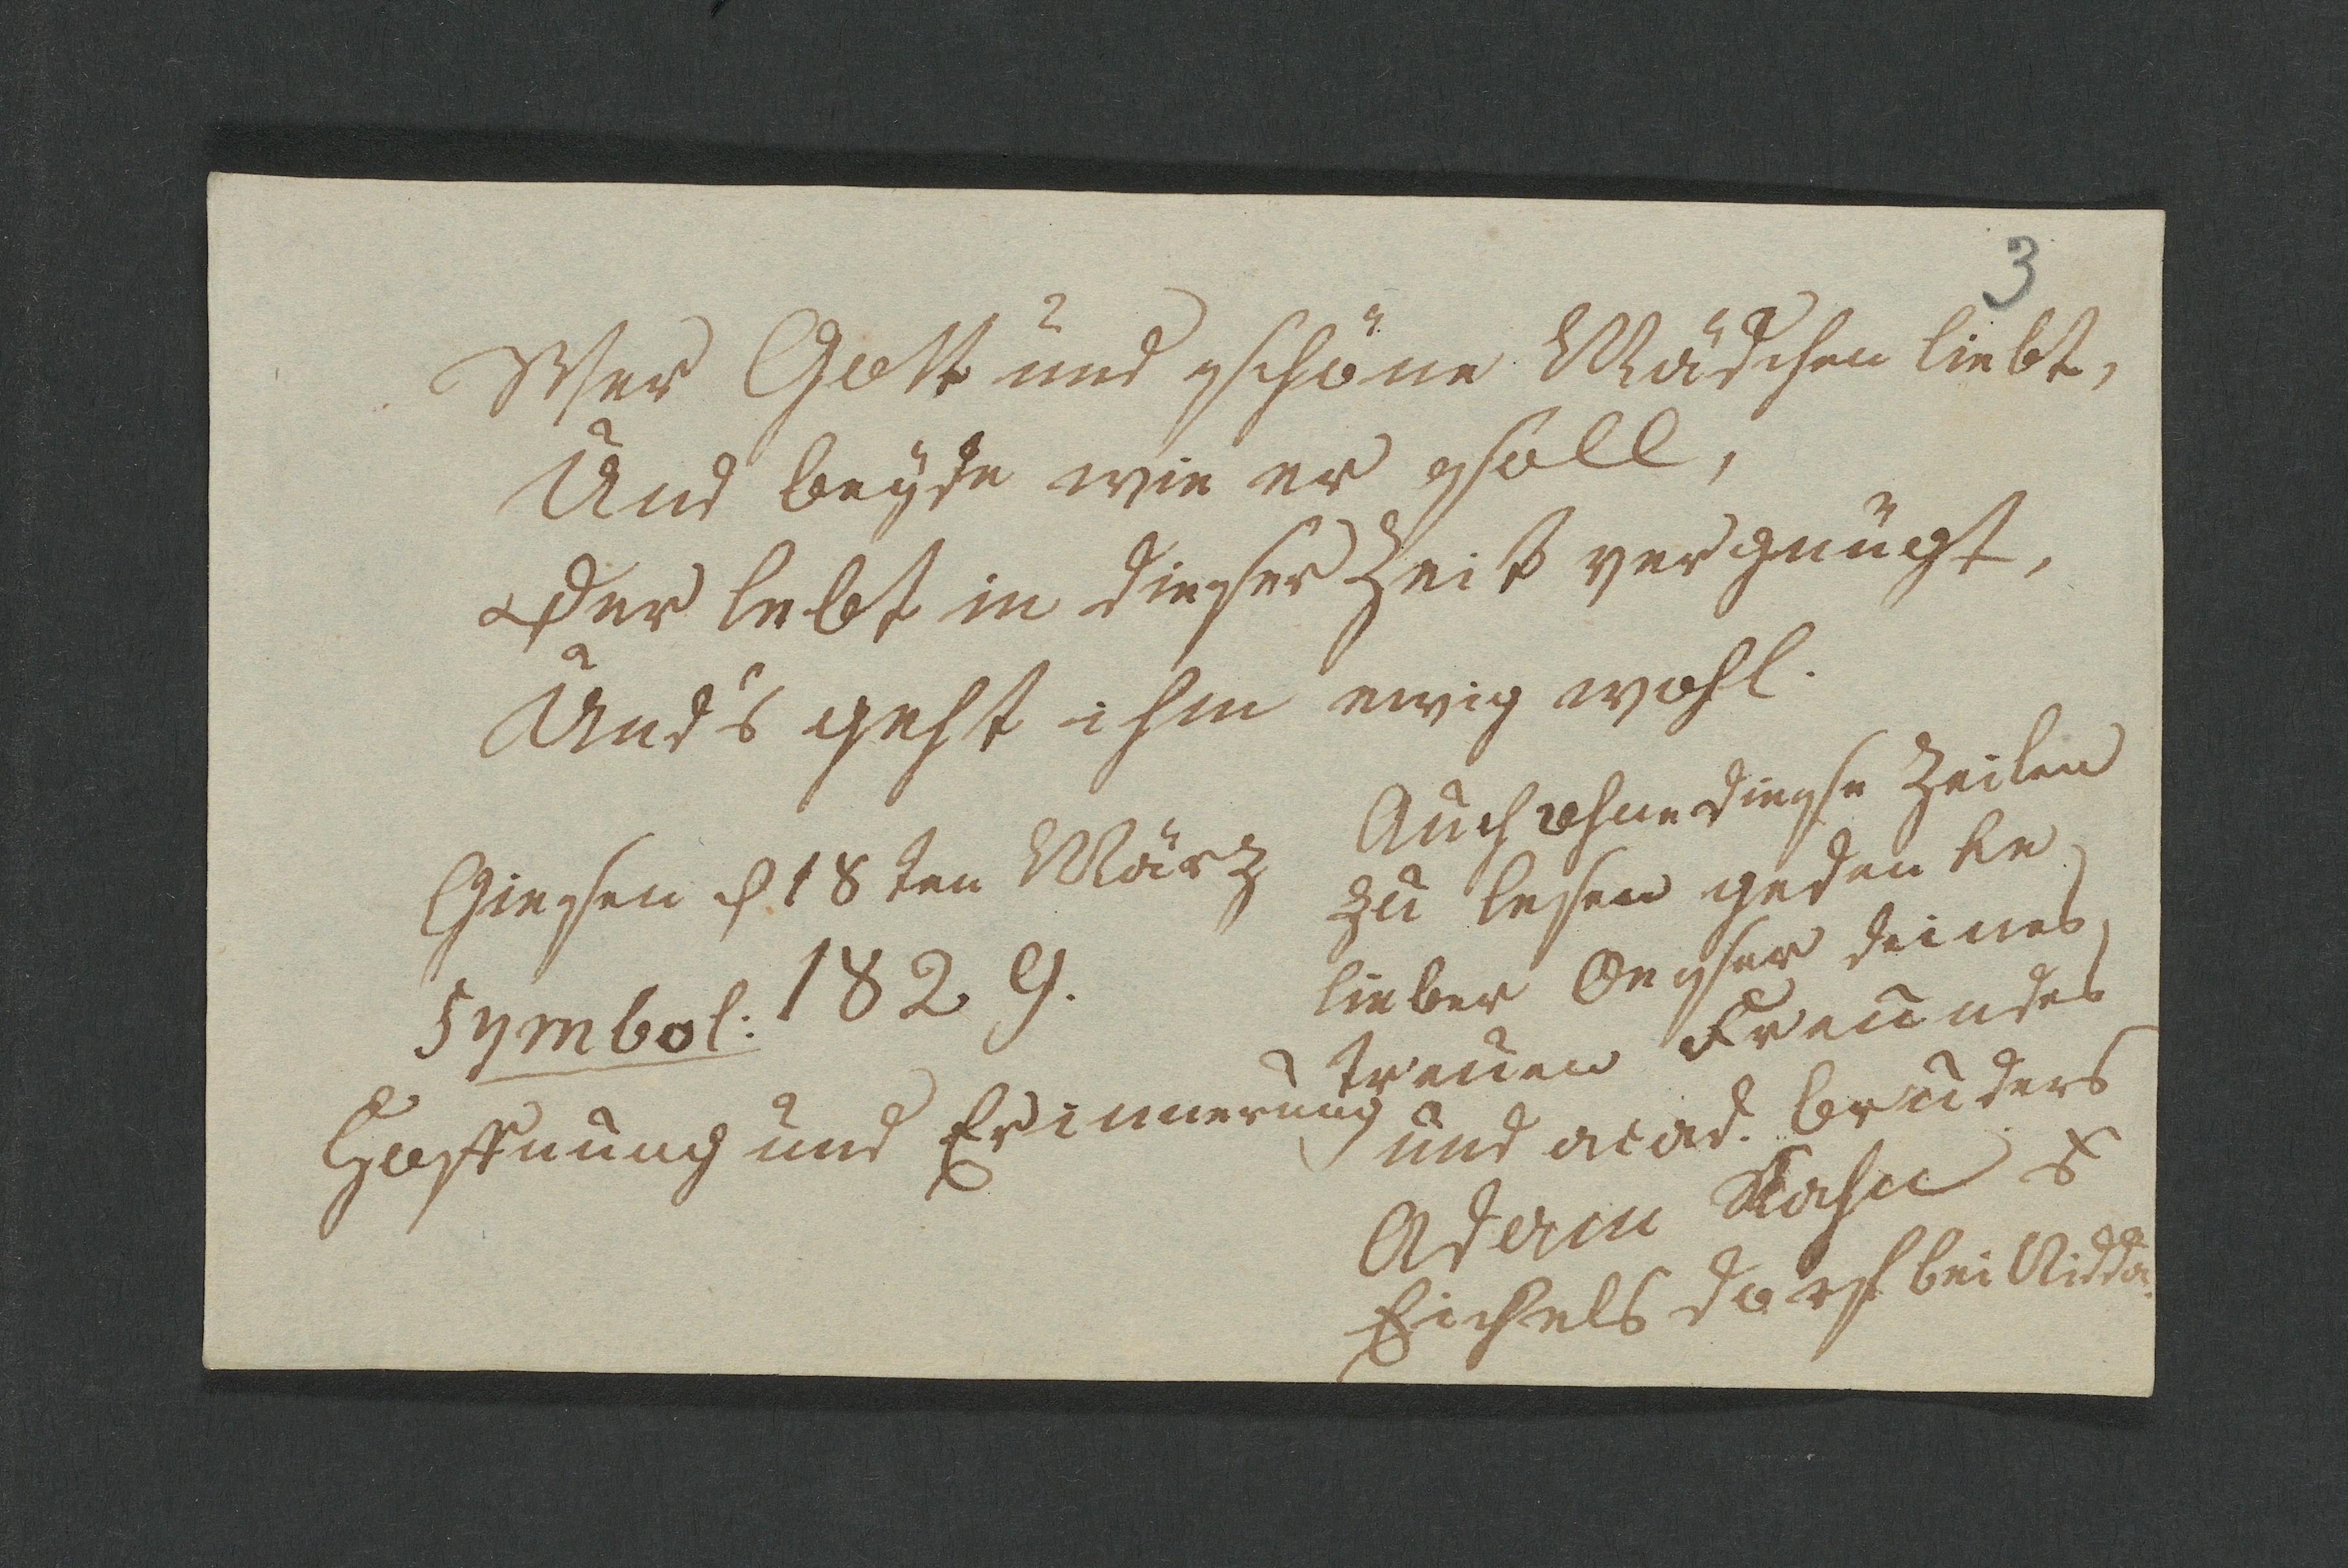 3
Wer Gott und schöne Mädchen liebt,
Und beyde wie er soll,
Der lebt in dieser Zeit vergnügt,
Und's geht ihm ewig wohl.
Giesen d. 18ten März
1829.
Symbol:
Hoffnung und Erinnerung
Auch ohne diese Zeilen
zu lesen gedenke
lieber Oeser deines
treuen Freundes
und acad. Bruders
Adam
Eichelsdorf bei Nidda.